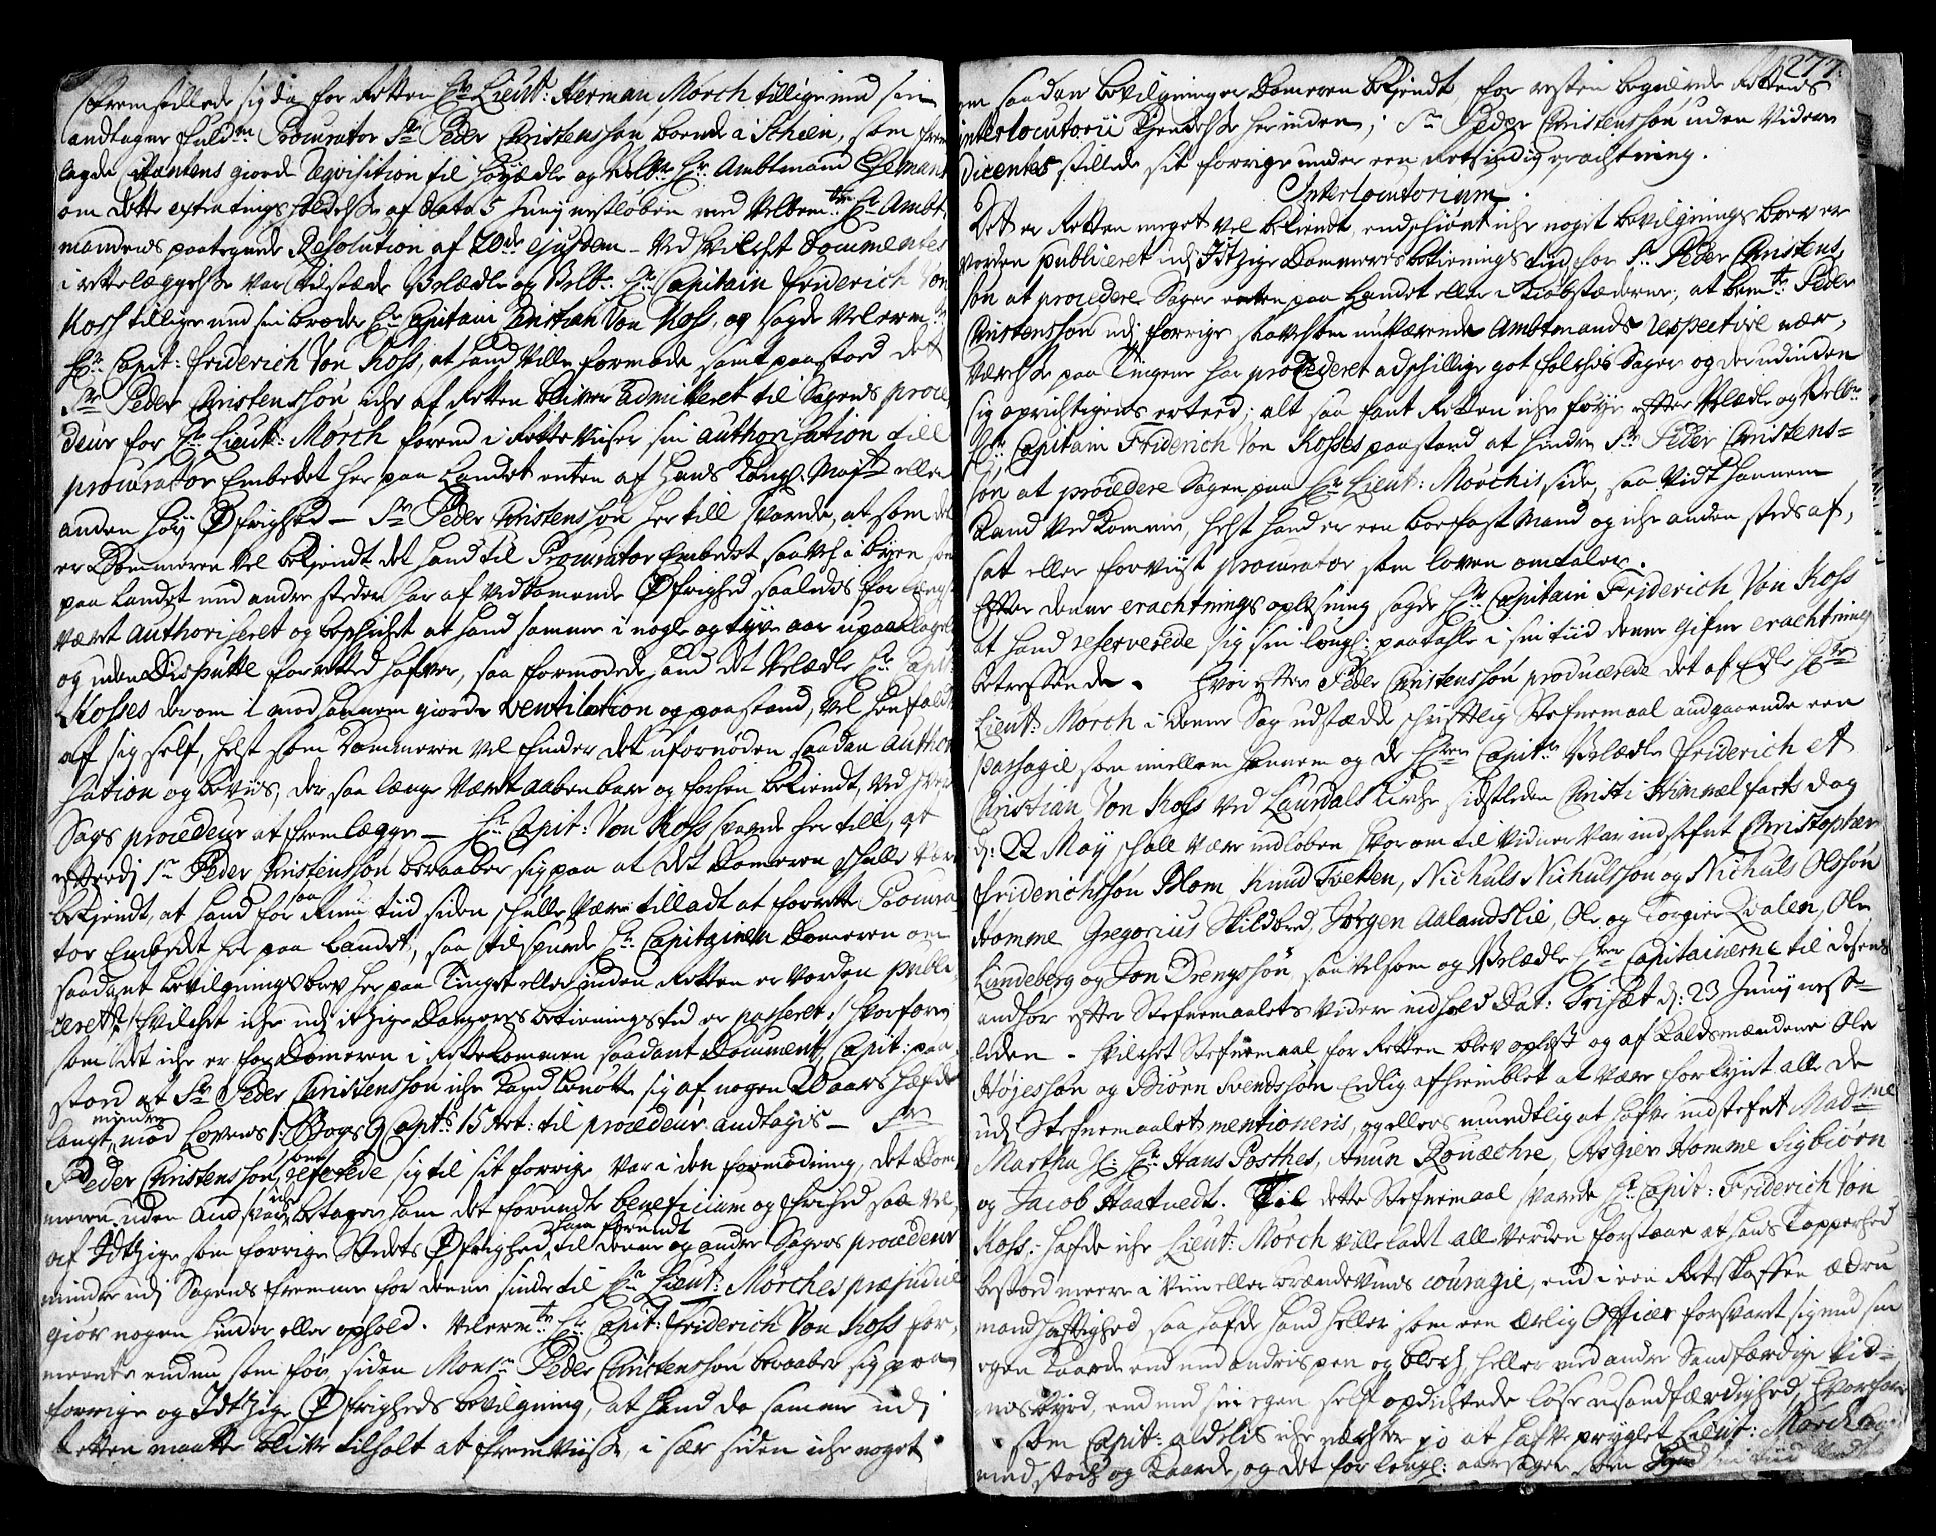 fremstillede sig da for Retten Hr: Lieut: Herman Mørch tillige med sin
andtagne fuldm: Procurator Sr Peder Christenssøn boende i Schien, som frem
lagde Citantens giorde reqvisition til Høyædle og Velbr Hr: Ambtmand
om dette extra tings holdelse af dato 5 Junij nestleden med Velbem:te Hr Ambt
mandens paategnede Resolution af 20de ejusdem - Ved hvilchet Documentes
i rettelæggelse var tilstæde Velædle og Velb: Hr: Capitain Friderich Von
Koss tillige med sin broder Hr Capitain Christian Von Koss, og sagde Velerm:te
Hr: Capit: Friderich Von Koss, at hand Ville formode samt paastod det
Sr Peder Christenssøn, iche af Retten bliver admitteret til Sagens proce
deur for Hr: Lieut: Mørch forend i Rette Viiser sin authorisation till
procurator Embedet her paa Landet enten af Hans Kongl: Mayts eller
anden høy Øfrighed - Sr Peder Christenssøn her till svarede, at som det
er Dommeren vel bekiendt det hand til Procurator Embedet saavel i byen som
paa Landet med andre steder har af vedkomende Øfrighed saaledes for lengst
været authoriseret og beschichet at hand samme i nogle og tyve aar upaaklaget
og uden Dispute forrettet hafver, saa formodede hand det Velædle Hr: Capit:
Kosses derom i mod hannem giorde ventilation og paastand, vel henfaldt
af sig self, helst som Dommeren vel finder det ufornøden saadan authori
sation og beviis, der saa længe været aabenbare og forhen bekiendt, ved
Sags procedeur at fremlægge - Hr: Capit: Von Koss svarede her till, at
efterdj Sr Peder Christenssøn beraaber sig paa at det Domeren schulle være
bekiendt, at hand for saa Rum tiid siden schulle være tilladt at forrette Procura
tor Embedet her paa Landet, saa tilspurde Hr: Capitainen Domeren om
saadant bevilgnings brev her paa Tinget eller inden Retten er vorden publi
ceret? hvilchet iche udj itzige Domeres betienings tid er passeret; hvorfore
som det iche er for Domeren i Rette kommen saadant Document, Capit: paa
stod at Sr Peder Christenssøn iche kand benøtte sig af nogen 20 aars hæfd
langt mindre mod Lovens 1: Bogs 9 Capts 15 Art: til procedeur andtages - Sr
Peder Christenssøn som refererede sig til sit forrige var i den formodning, det Dom
meren uden Andsvar iche betager ham det forundte beneficium og frihed saa vel
af Idtzige som forrige Stedets Øfrighed ham forundt til denne og andre Sagers procedeur
mindre udj Sagens fremme for denne sinde til Hr: Lieut: Mørches præjudice
giør nogen hinder eller ophold. Velerm:te Hr: Capit: Friderich Von Koss for
meente endnu som før, siden Monsr Peder Christenssøn beraaber sig paa
forrige og Idtzige Øfrigheds bevilgning, at hand da samme udj
Retten maatte blive tilholt at fremviise, i sær siden iche noget
277.
om saadan bevilgning er Domeren bekiendt for resten begiærede Rettens
interlocutorii kiendelse herinden; Sr Peder Christenssøn uden Videre
Dicentes stillede sit forrige under een Retsindig erachtning.
Interlocutorium.
Det er Retten meget vel bekiendt, endschiønt iche noget bevilgnings brev er
vorden publiceret udj Itzige Dommeres betienings tiid for Sr Peder Christens
søn at procedere Sager enten paa Landet eller i Kiøbstæderne, at bem:te Peder
Christenssøn udj forrige saavelsom nuværende Ambtmands respective nær
værelse paa Tingene har procederet adschillige got folches Sager og derudinden
sig oprichtigens erteed; alt saa fant Retten iche føye efter Velædle og Velb:
Hr: Capitain Friderich Von Kosses paastand at hindre Sr Peder Christens=
søn at procedere Sagen paa Hr: Lieut: Mørchis side, saa vidt hannem
kand vedkomme, helst hand er een boefast Mand og iche anden steds af,
sat eller forviist procurator som loven omtaler.
Efter denne erachtnings oplæsning sagde Hr: Capitain Friderich Von Koss
at hand reserverede sig sin lougl: paatahle i sin tiid denne gifne erachtning
betreffende. Hvor efter Peder Christenssøn producerede det af Edle Hr
Lieut: Mørch i denne Sag udstædde schriftlig Stefnemaal andgaaende een
passagie som imellem hannem og de Hrer Capit: Velædle Friderich et
Christian Von Koss ved Laurdals Kirche sidstleden Christi Himmelfarts dag
d: 22 May schall være indløben hvor om til vidner var indstefnt Christopher
Friderichssøn Blom, Knud Tvetten, Nichuls Nichulssøn og Nichuls Olssøn
Homme, Gregorius Skildbred, Jørgen Aalandslie, Ole og Torgier Qvalen, Ole
Lundeberg og Jon Drengssøn, saa velsom og Velædle Hrer Capitainerne til desens
andhør efter Stefnemaalets videre indhold Dat: Trisæt d: 23 Junij nest=
leden - hvilchet Stefnemaal for Retten blev oplæst og af Kaldsmændene Ole
Højessøn og Biørn Svendssøn Eedlig afhiemblet at være forkyndt alle de
udj Stefnemaalet mentioneris, og ellers mundtlig at hafve indstefnt Madme
Martha Sl: Hr Hans Posthes, Anun Rouæchre, Asgier Homme, Sigbiørn
og Jacob Haatvedt. Til dette Stefnemaal svarede Hr: Capit: Friderich Von
Koss: hafde iche Lieut: Mørch villeladet all Verden forstaae at hans tapperhed
bestoed meere i Viin eller brændeviins couragie, end i een Retskaffen ædru
mandhaftighed, saa hafde hand heller som een ærlig Officier forsvart sig med sin
egen kaarde end med andris pen og blech, heller med andre Sandfærdige vid=
nisbyrd, end med sin egen self opdichtede løse usandfærdighed, hvorfore
som Capit: aldelis iche nechter på at hafve pryglet Lieut: Mørch
med stoch og kaarde, og det for lougl: aarsager som hand sin tiid